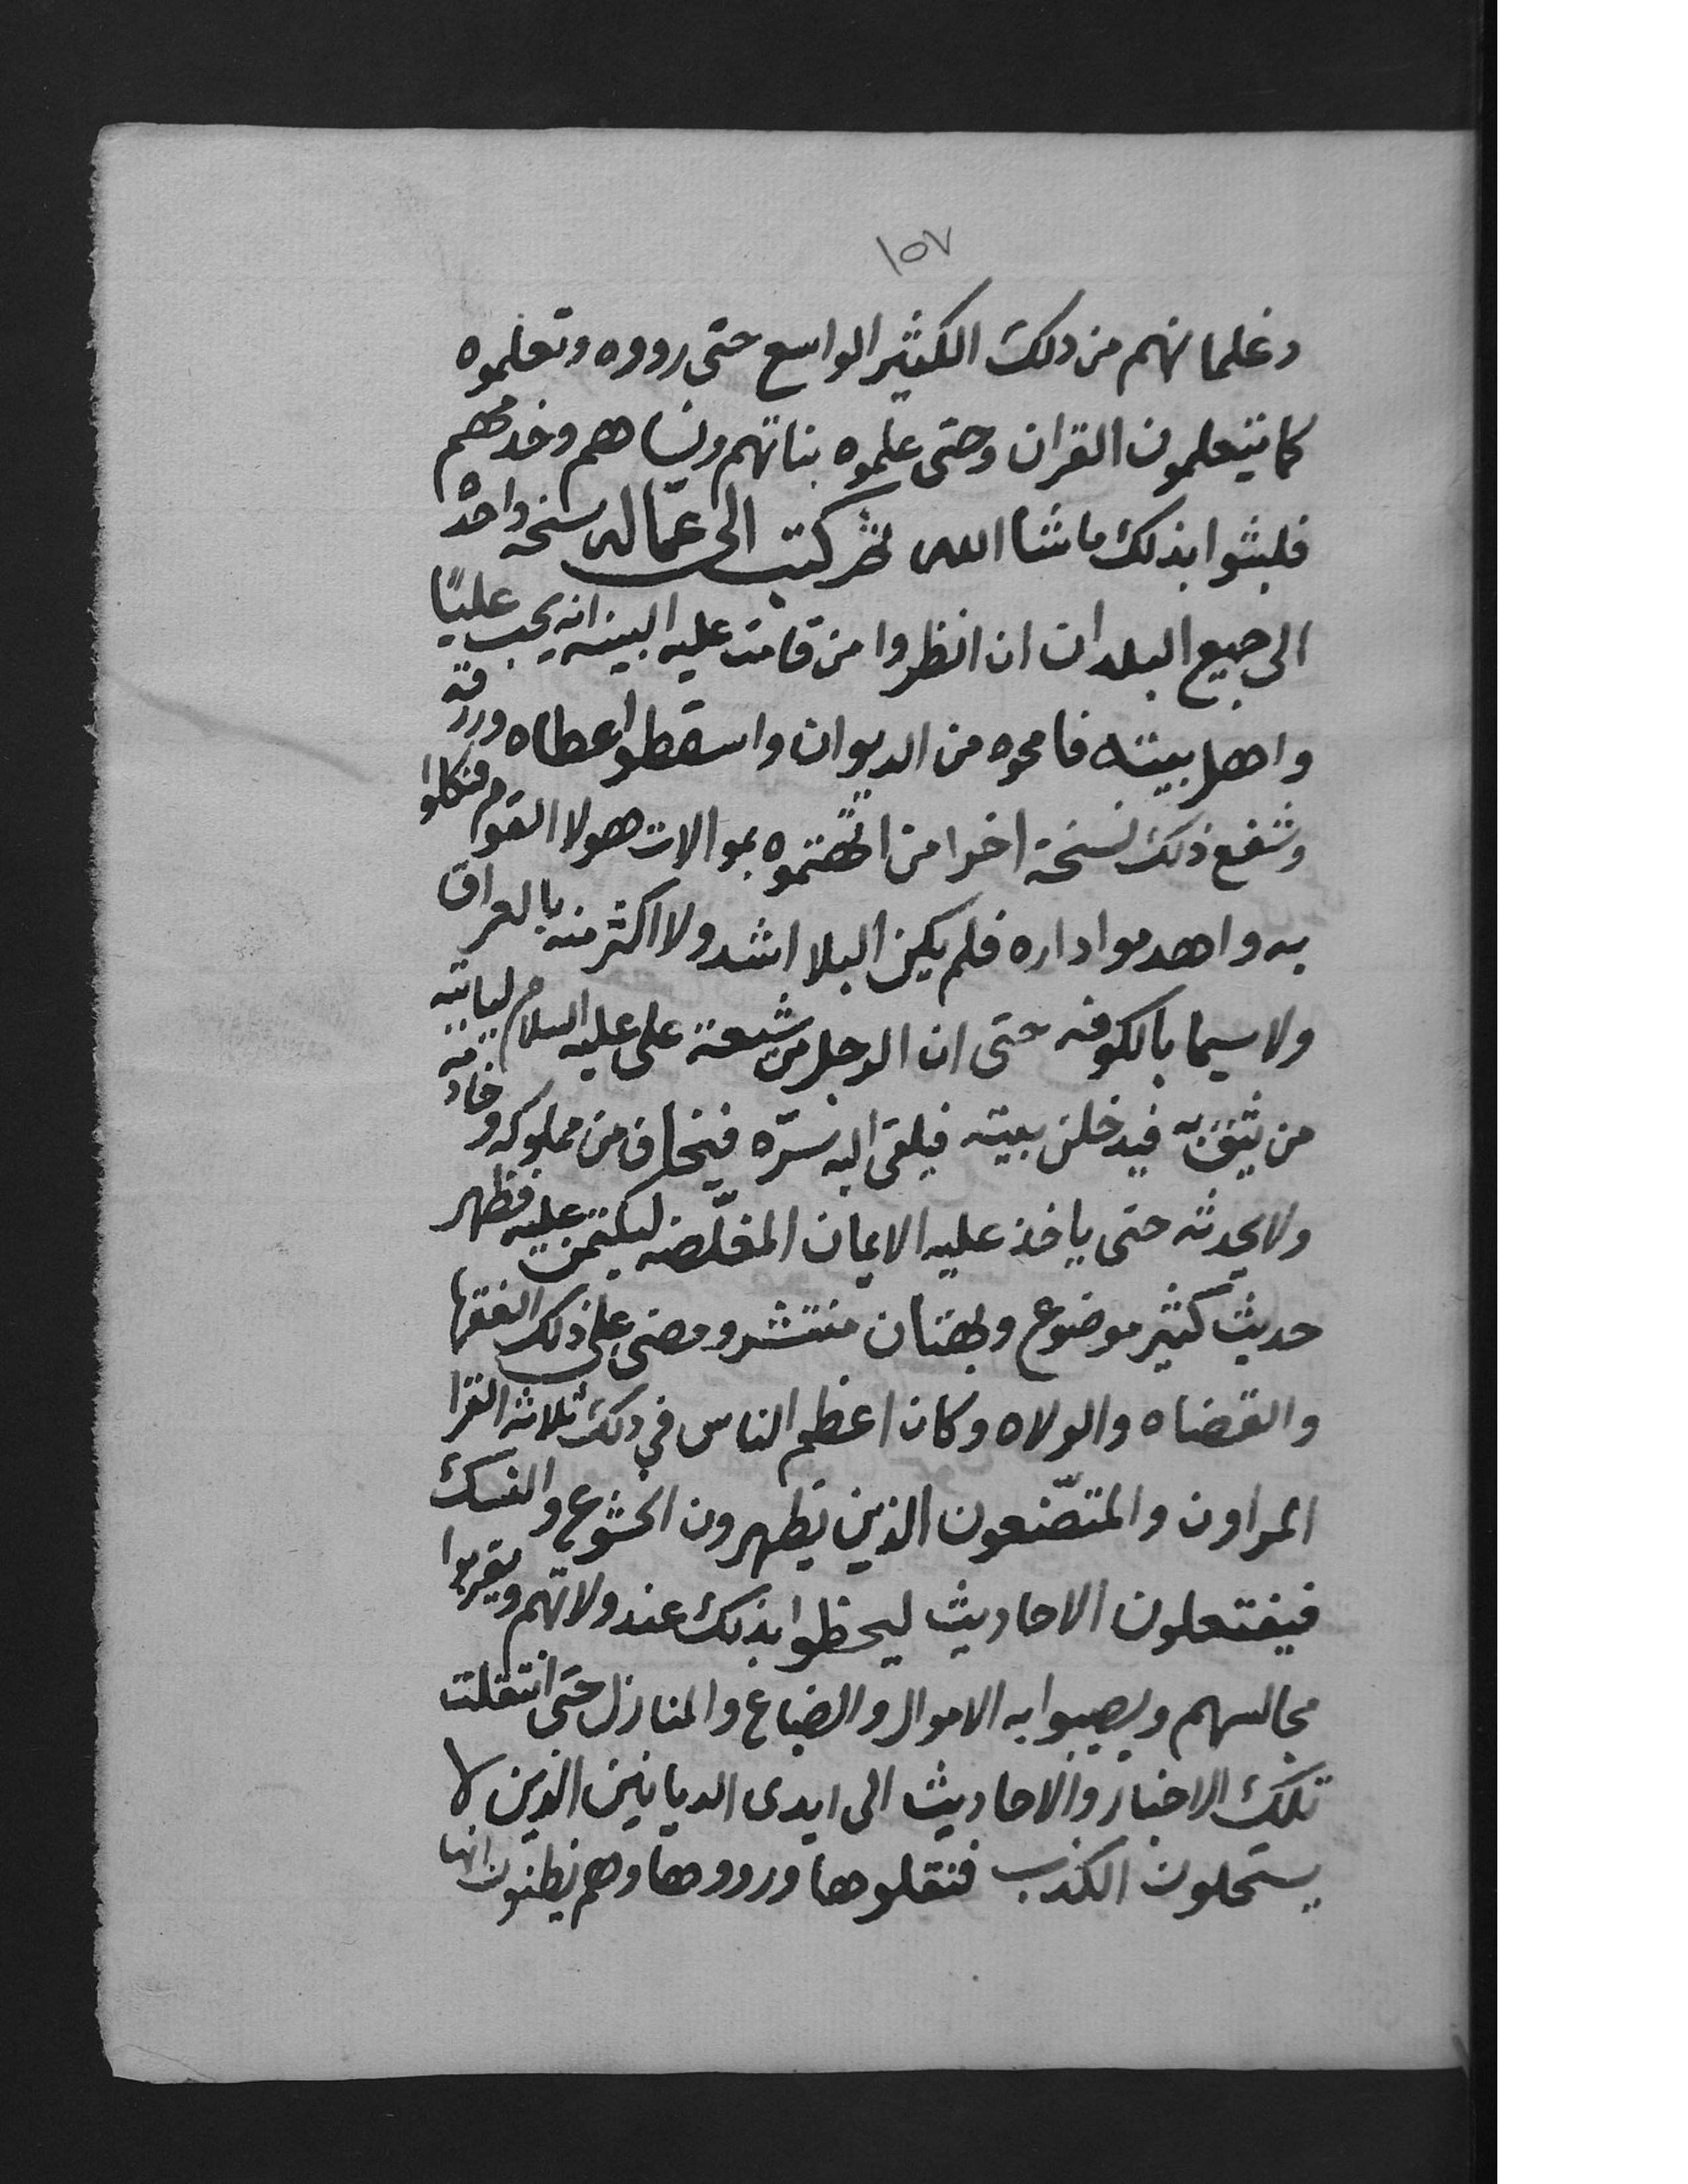 ١٥٧
وغلمانهم من ذلك الكثير الواسع حتى رووه وتعلموه
كما يتعلمون القران وحتى علموه بناتهم ونساهم وخدمهم
فلبثوا بذلك ما شا الله ثم كتب الى عمّاله نسخه واحدة
الى جميع البلدان ان انظروا من قامت عليه البينه انه يحب عليًا
واهل بيته فامحوه من الديوان واسقطوا عطاه ورزقه
وشفع ذلك نسخة اخرا من اتهمتموه بموالات هولا القوم فنكلوا
به واهدموا داره فلم يكن البلا اشد ولا اكثر منه بالعراق
ولا سيما بالكوفه حتى ان الرجل من شيعة على عليه السلام لياتيه
من يثق به فيدخل بيته فيلقى اليه سرّه فيخاف من مملوكه وخادمه
ولا يحدثه حتى ياخذ عليه الايمان المغلّضه ليكتمن عليه فظهر
حديث كثير موضوع وبهتان منتشر ومضى على ذلك الفقها
والقضاه والولاه وكان اعظم الناس في ذلك ثلاثه القرا
المراون والمتصّنعون الذين يظهرون الخشوع والنسك
فيفتعلون الاحاديث ليحظوا بذلك عند ولاتهم ويقربوا
مجالسهم ويصيبوا به الاموال والضياع والمنازل حتى انتقلت
تلك الاخبار والاحاديث الى ايدى الديانين الذين لا
يستحلون الكذب فنقلوها ورووها وهم يظنون انها